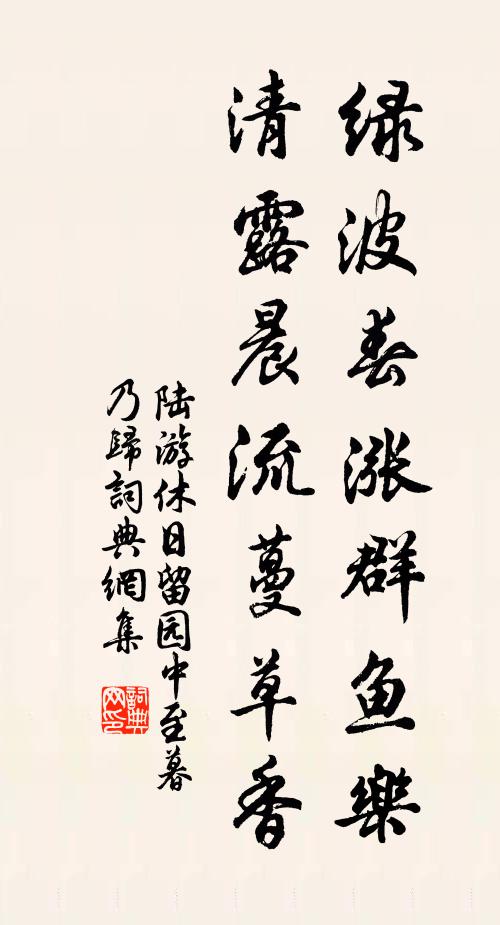 绿波春涨群鱼樂
清露晨流蔓草香
陆游休日留园中至暮
乃歸詞典網集
詞典网印